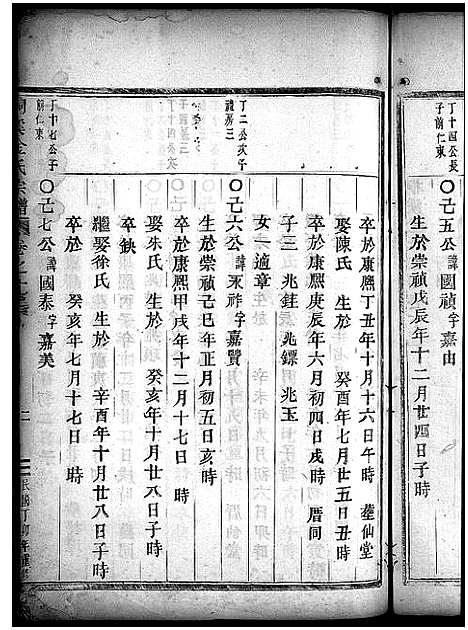 丁十四公長
子前仁東
〇己五公諱國禎字嘉由
生於崇禎戊辰年十二月廿四日子時
卒於康熙丁丑年十月十六日午時 塟仙堂
娶陳氏 生於 癸酉年七月廿五日丑時
卒於康熙庚辰年六月初四日戌時 厝同
子三 兆銈 兆鏢 兆玉
女一適章
丁二公亥子
禮房三
〇己六公諱永祚字嘉贊
生於崇禎己巳年正月初五日亥時
卒於康熙甲戌年十二月十七日 時
娶朱氏 生於 癸亥年十月廿八日子時
卒缺
繼娶徐氏 生於 辛酉年十月廿八日子時
卒於 癸亥年七月十七日 時
丁十七公子
前仁東
〇己七公諱國泰字嘉美
氏宗譜
二